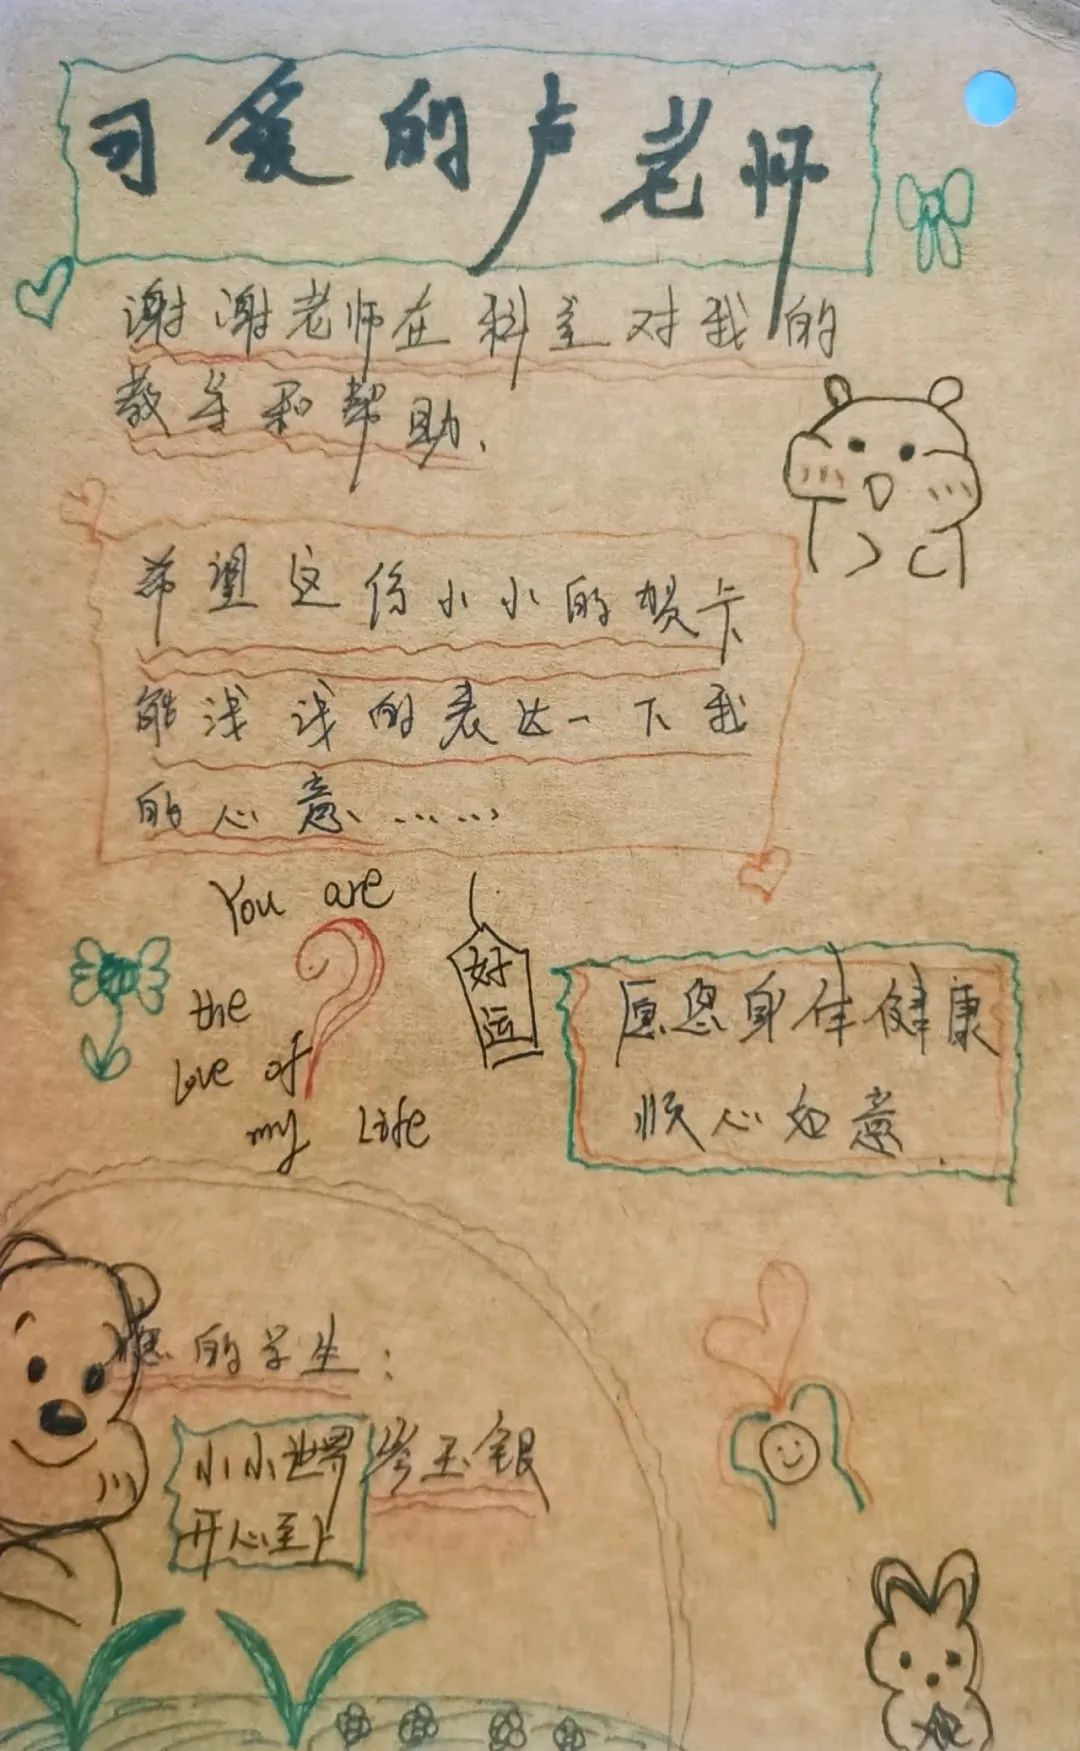 可爱的卢老师
谢谢老师在科室对我的
教导和帮助.
希望这份小小的贺卡
能浅浅的表达一下我
的心意......
You are
the
love of
my Life
好
运
愿您身体健康
顺心如意.
您的学生:
小小世界
开心至上
岑玉银